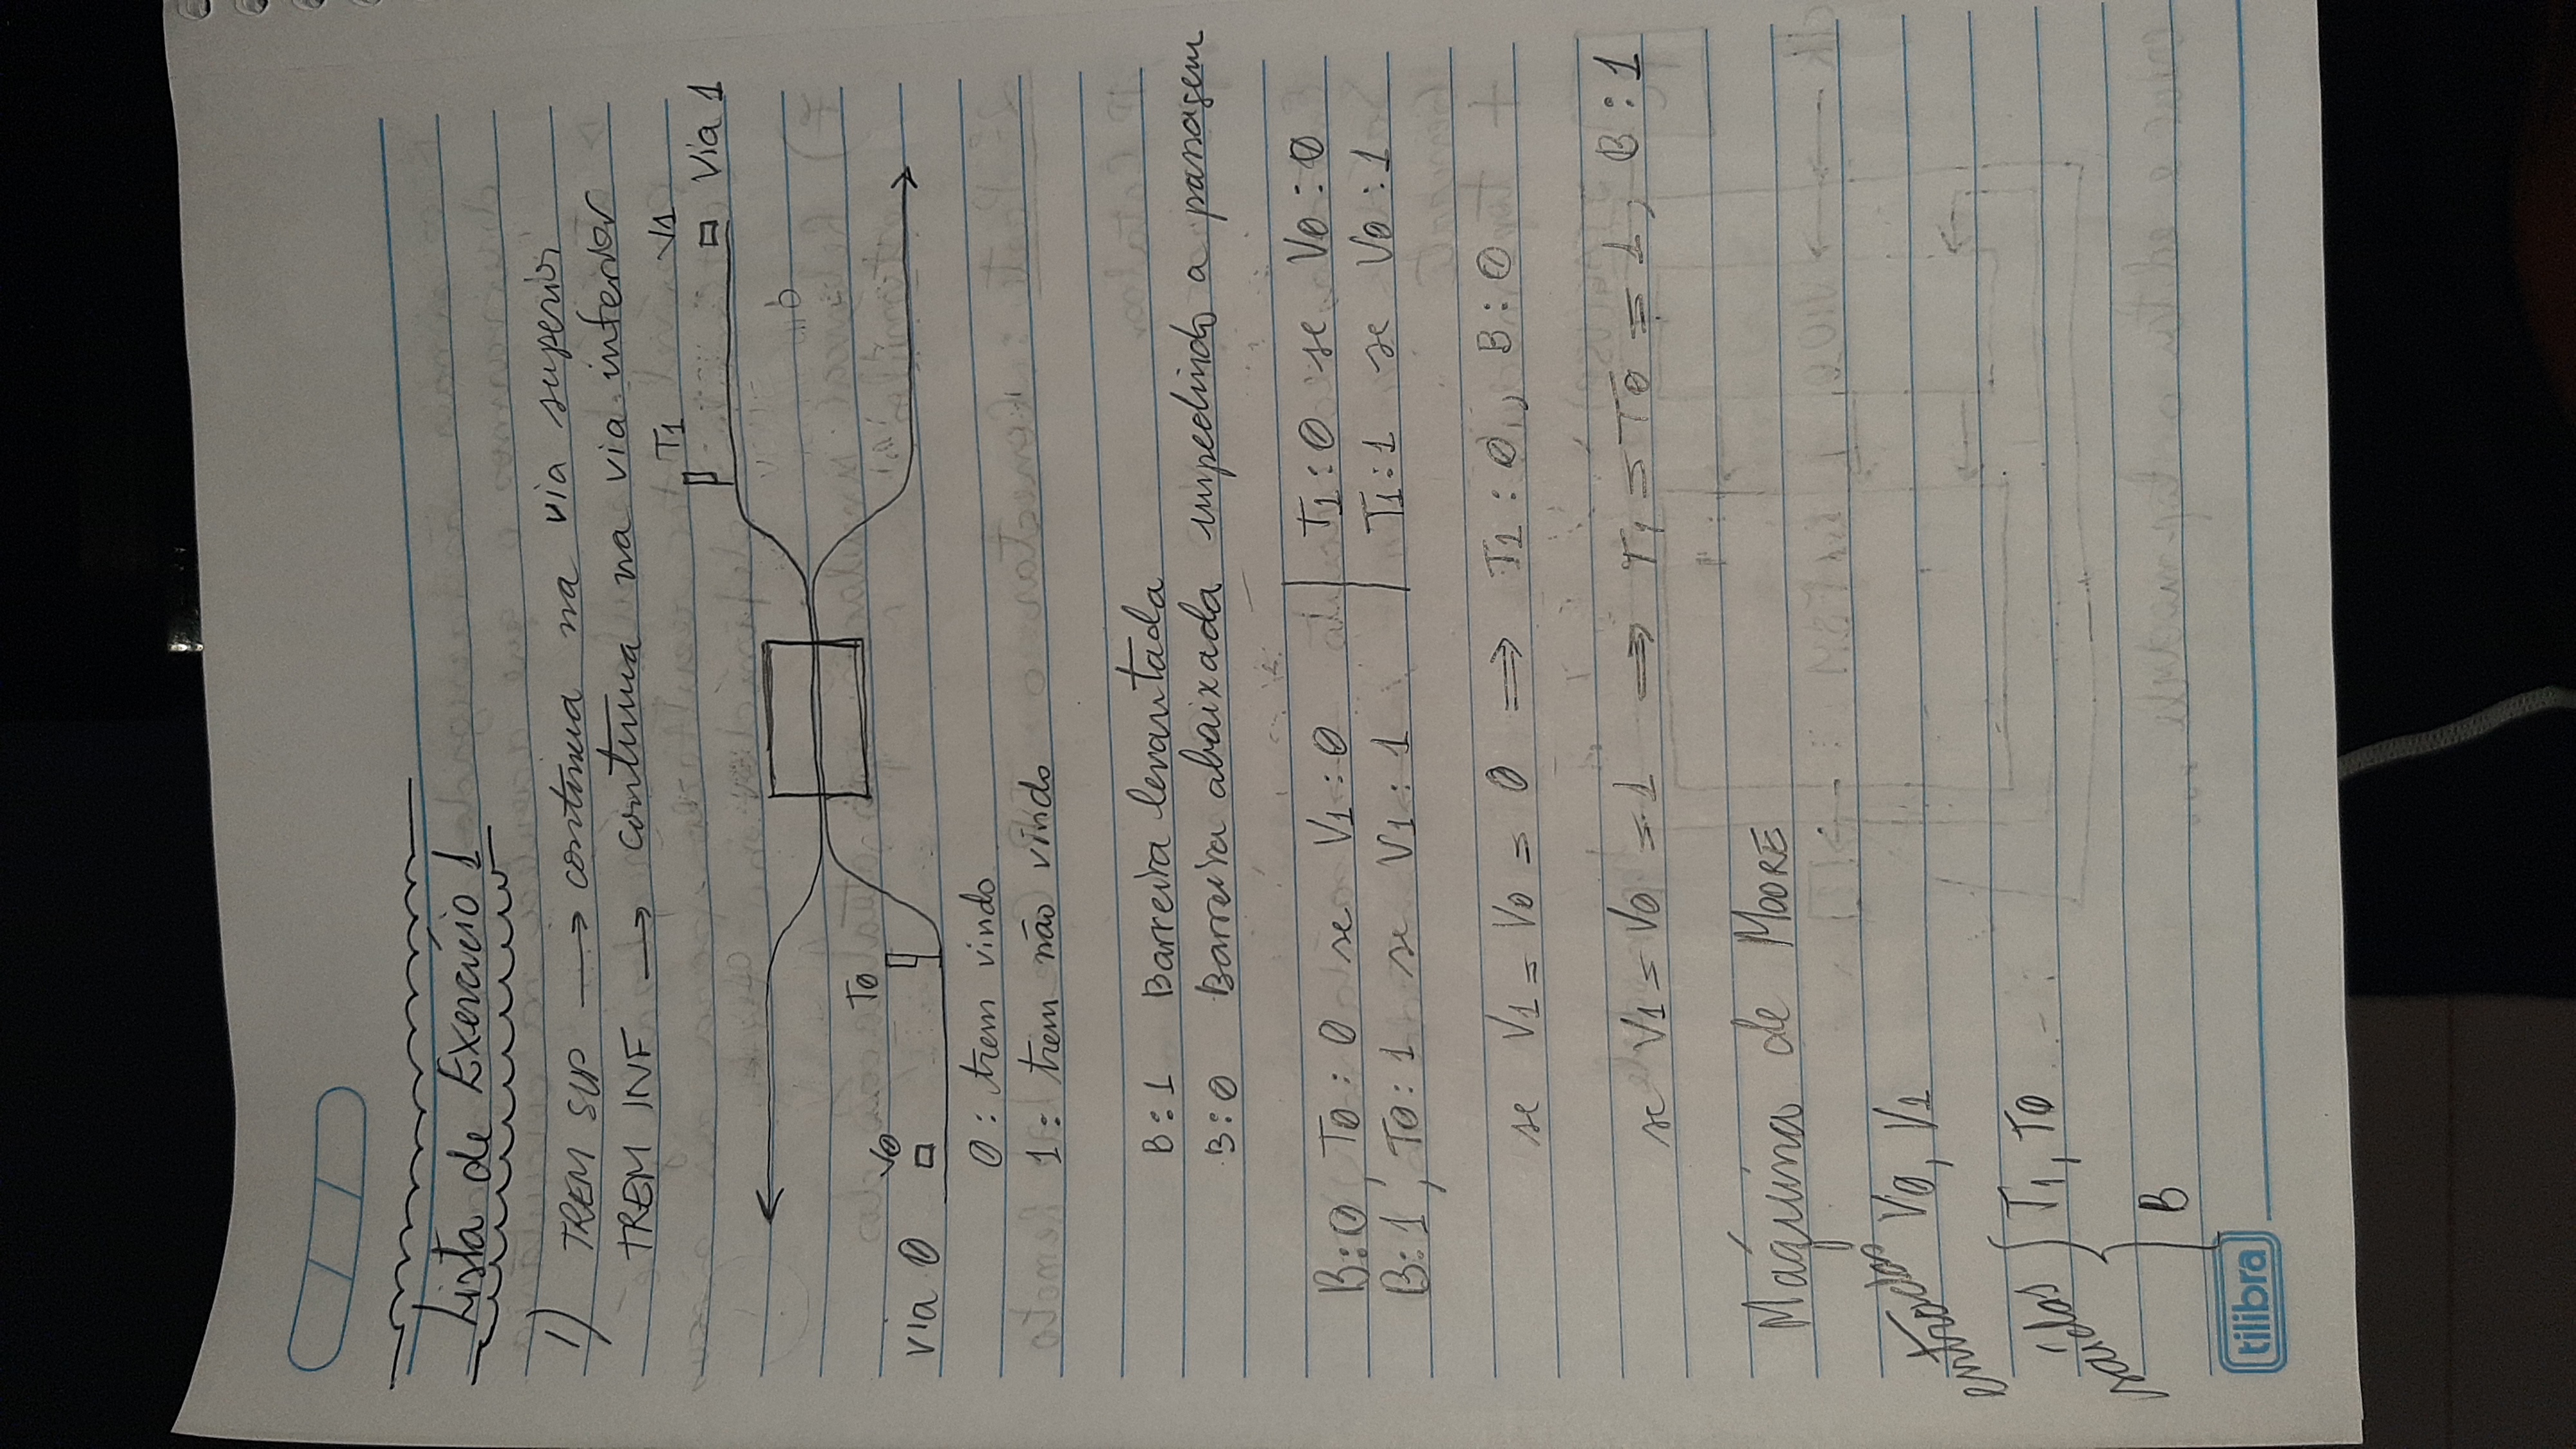 Lista de Exercício 1
1) TREM SUP → continua na via superior
TREM INF → continua na via inferior
T1 V1
Via 1
T0
V0
via 0
0: trem vindo
1: trem não vindo
B:1 Barreira levantada
B:0 Barreira abaixada impedindo a passagem
B:0, T0:0 se V1:0 | T1:0 se V0:0
B:1, T0:1 se V1:1 | T1:1 se V0:1
se V1 = V0 = 0 ⇒ T1:0, B:0
se V1 = V0 = 1 ⇒ T1 = T0 = 1, B:1
Máquina de MOORE
entradas V0, V1
saídas { T1, T0
B
tilibra